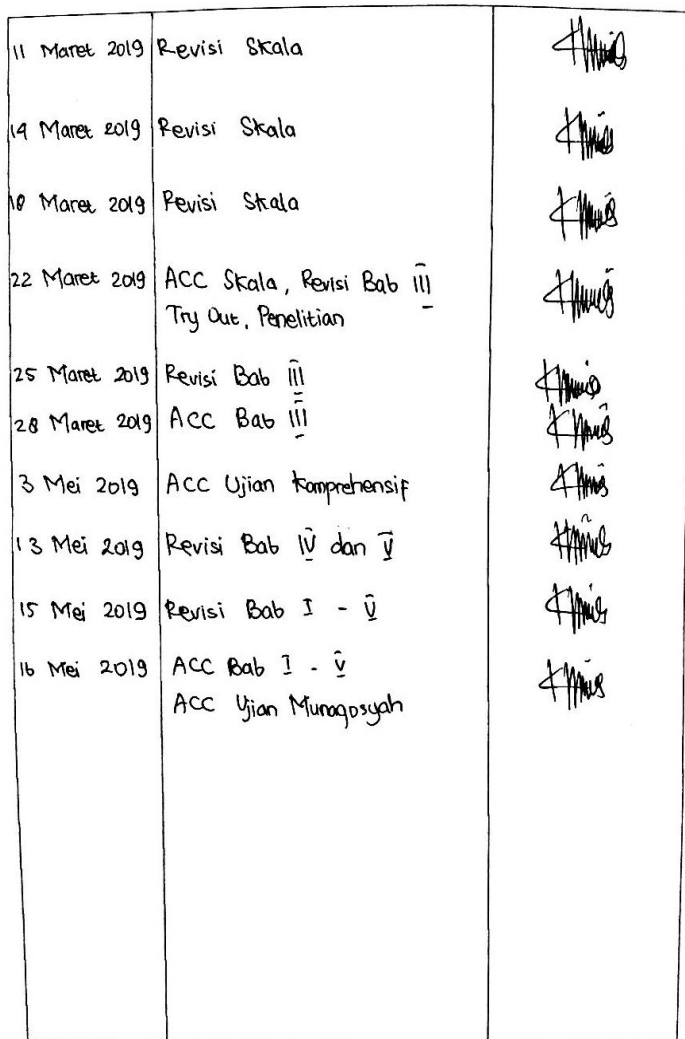 11 Maret 2019 Revisi Skala
14 Maret 2019 Revisi Skala
18 Maret 2019 Revisi Skala
22 Maret 2019 ACC Skala, Revisi Bab III
Try Out, Penelitian
25 Maret 2019 Revisi Bab III
28 Maret 2019 ACC Bab III
3 Mei 2019 ACC Ujian Komprehensif
13 Mei 2019 Revisi Bab IV dan V
15 Mei 2019 Revisi Bab I - V
16 Mei 2019 ACC Bab I - V
ACC Ujian Munaqosyah